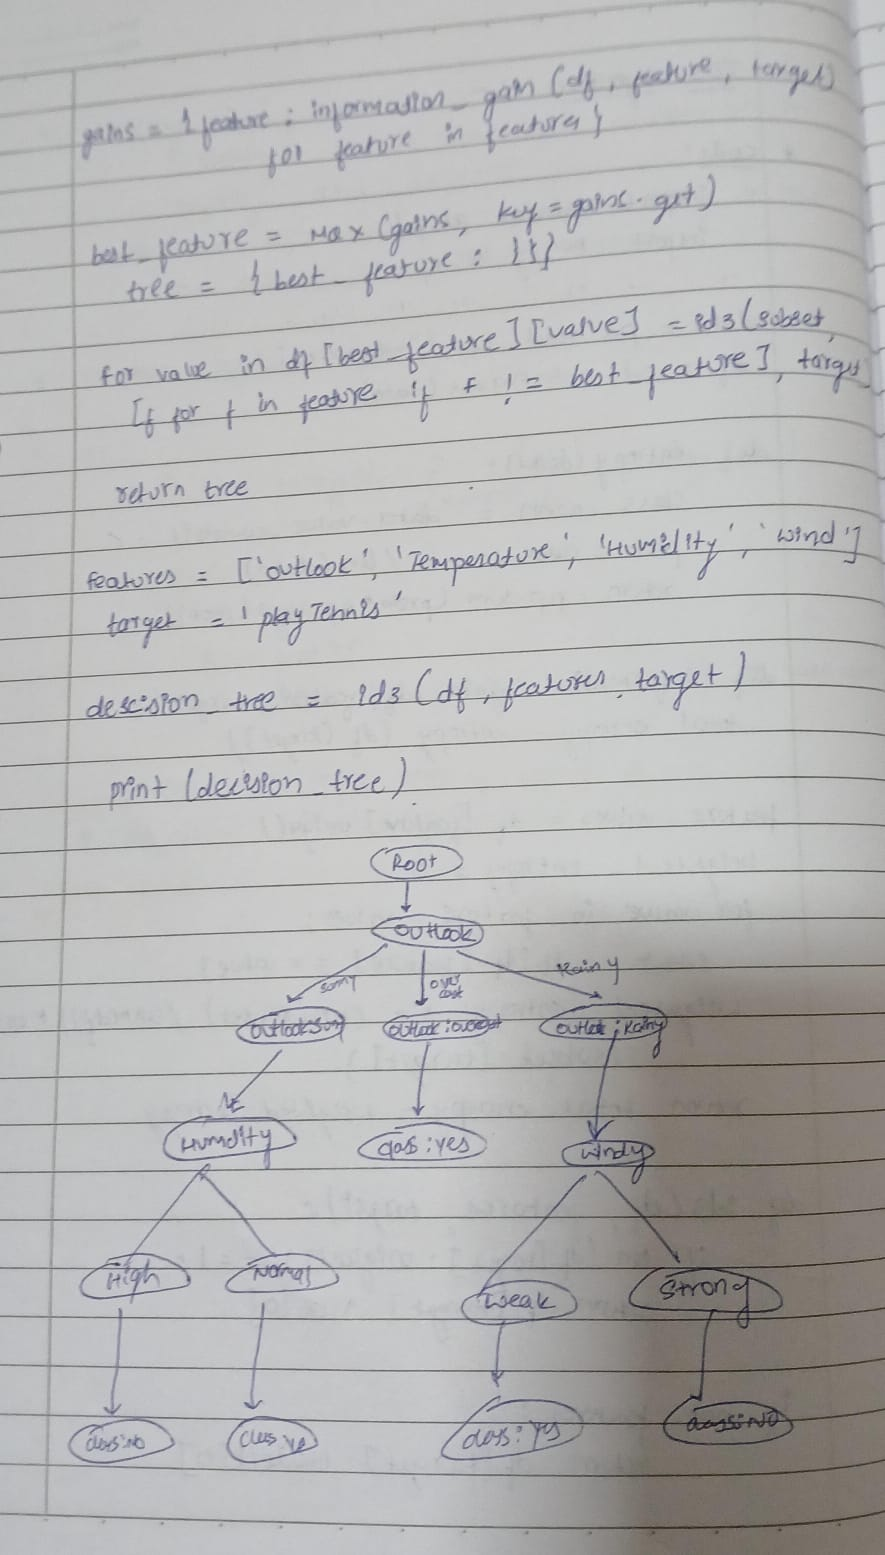 gains = { feature : information_gain (df, feature, target)
for feature in features }
best_feature = Max (gains, key = gains.get)
tree = { best_feature : {}}
for value in df [best_feature] [value] = id3 (subset,
[f for f in feature if f != best_feature], target
return tree
features = ['outlook', 'Temperature', 'Humidity', 'wind']
target = 'play Tennis'
descision_tree = id3 (df, features, target)
print (decision_tree)
Root
outlook
sunny
over cast
Rainy
outlook:
outlook : overcast
outlook : Rainy
Humdity
class : yes
windy
High
Normal
Weak
Strong
class: no
class: ye
class : yes
class: NO